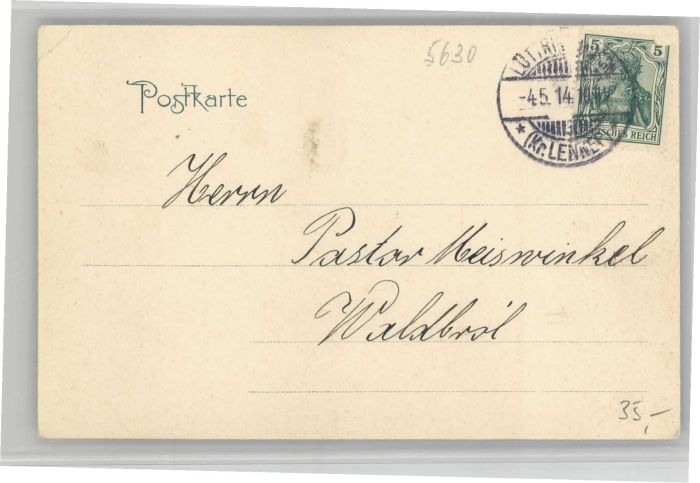 5630
5 5
DEUTSCHES REICH
-4.5.14.
* (Kr. LENNEP)
Postkarte
Herrn
Pastor Meiswinkel
Waldbröl
35,-